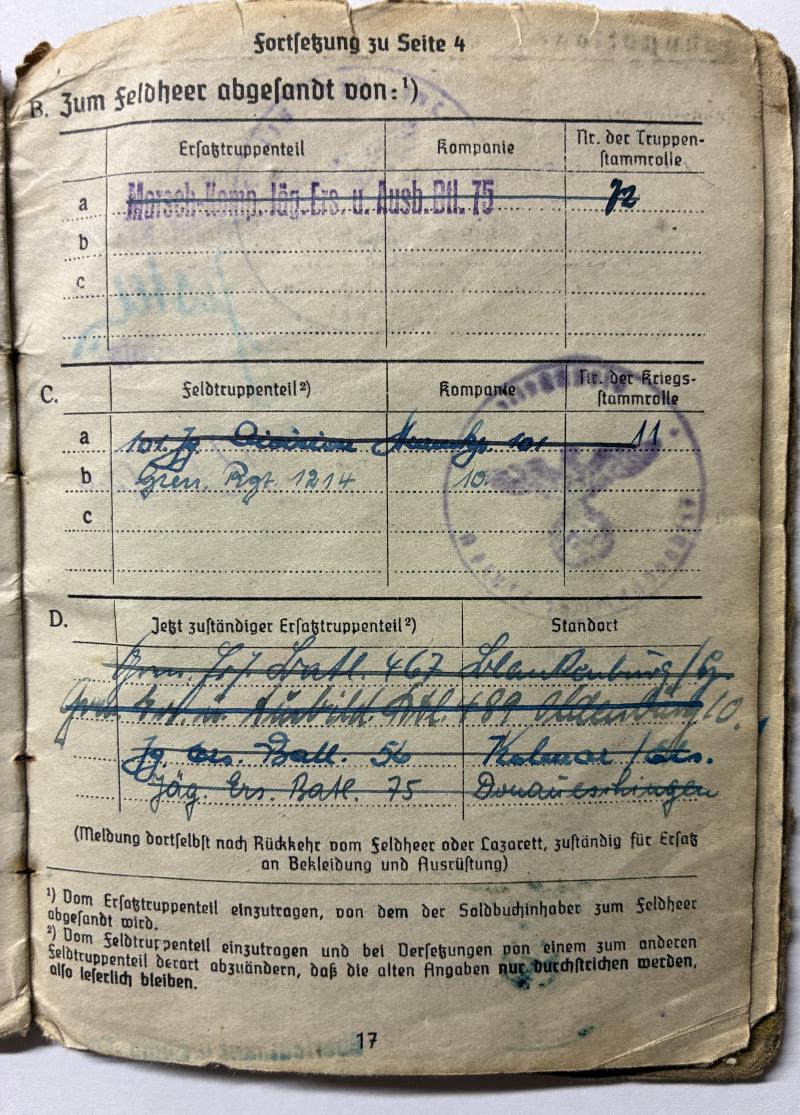 Fortsetzung zu Seite 4
B. Zum Feldheer abgesandt von:¹)
Ersatztruppenteil Kompanie Nr. der Truppen-
stammrolle
a Marsch-Komp. Jäg. Ers. u. Ausb. Btl. 75 72
b
c
C. Feldtruppenteil²) Kompanie Nr. der Kriegs-
stammrolle
a 101. Jg. Division 101 11
b Gren. Rgt. 1214 10.
c
D. Jetzt zuständiger Ersatztruppenteil²) Standort
Gren. Batl. 467 Blankenburg/
Gren. Ers. u. Ausbild. Btl. 489 Oldenburg/O.
Jg. Ers. Batl. 56 Kolmar/Els.
Jäg Ers. Batl. 75 Donaueschingen
(Meldung dortselbst nach Rückkehr vom Feldheer oder Lazarett, zuständig für Ersatz
an Bekleidung und Ausrüstung)
¹) Vom Ersatztruppenteil einzutragen, von dem der Soldbuchinhaber zum Feldheer
abgesandt wird.
²) Vom Feldtruppenteil einzutragen und bei Versetzungen von einem zum anderen
Feldtruppenteil derart abzuändern, daß die alten Angaben nur durchstrichen werden,
also leserlich bleiben.
17